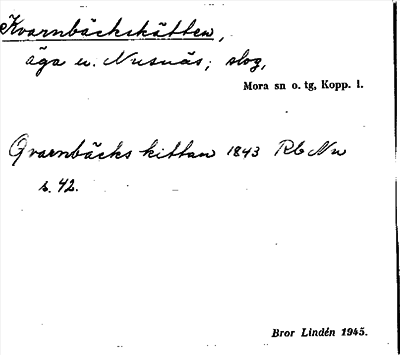 Kvarnbäckskätten,
äga u. Nusnäs; slog,
Mora sn o. tg, Kopp. l.
Qvarnbäcks kittan 1843 Rb Nu
s. 42.
Bror Lindén 1945.